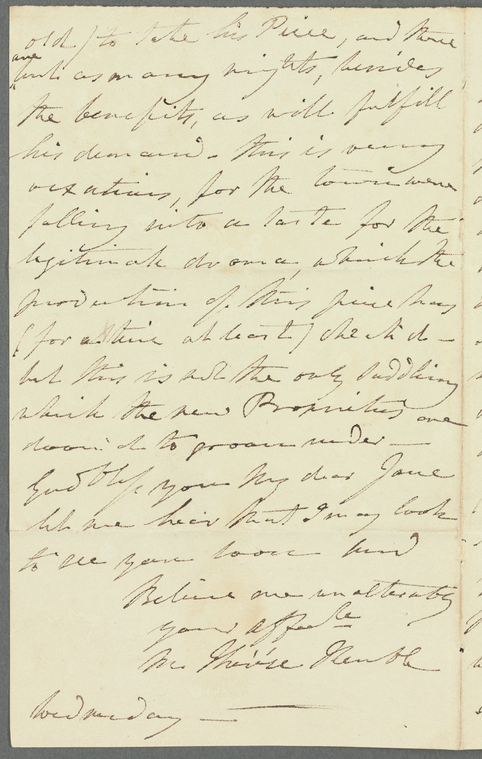 old) to take his Piece, and there
are
but as many nights, besides
the benefits, as will fulfill
his demand - this is very
vexatious, for the town were
falling into a taste for the
legitimate drama, which the
production of this piece has
(for a time at least) check'd -
but this is not the only Saddling
which the new Proprietors are
doom'd to groan under -
God bless you My dear Jane
let me hear that I may look
to see you soon and
Believe me unalterably
your affecte
M. Thérèse Kemble
Wednesday -